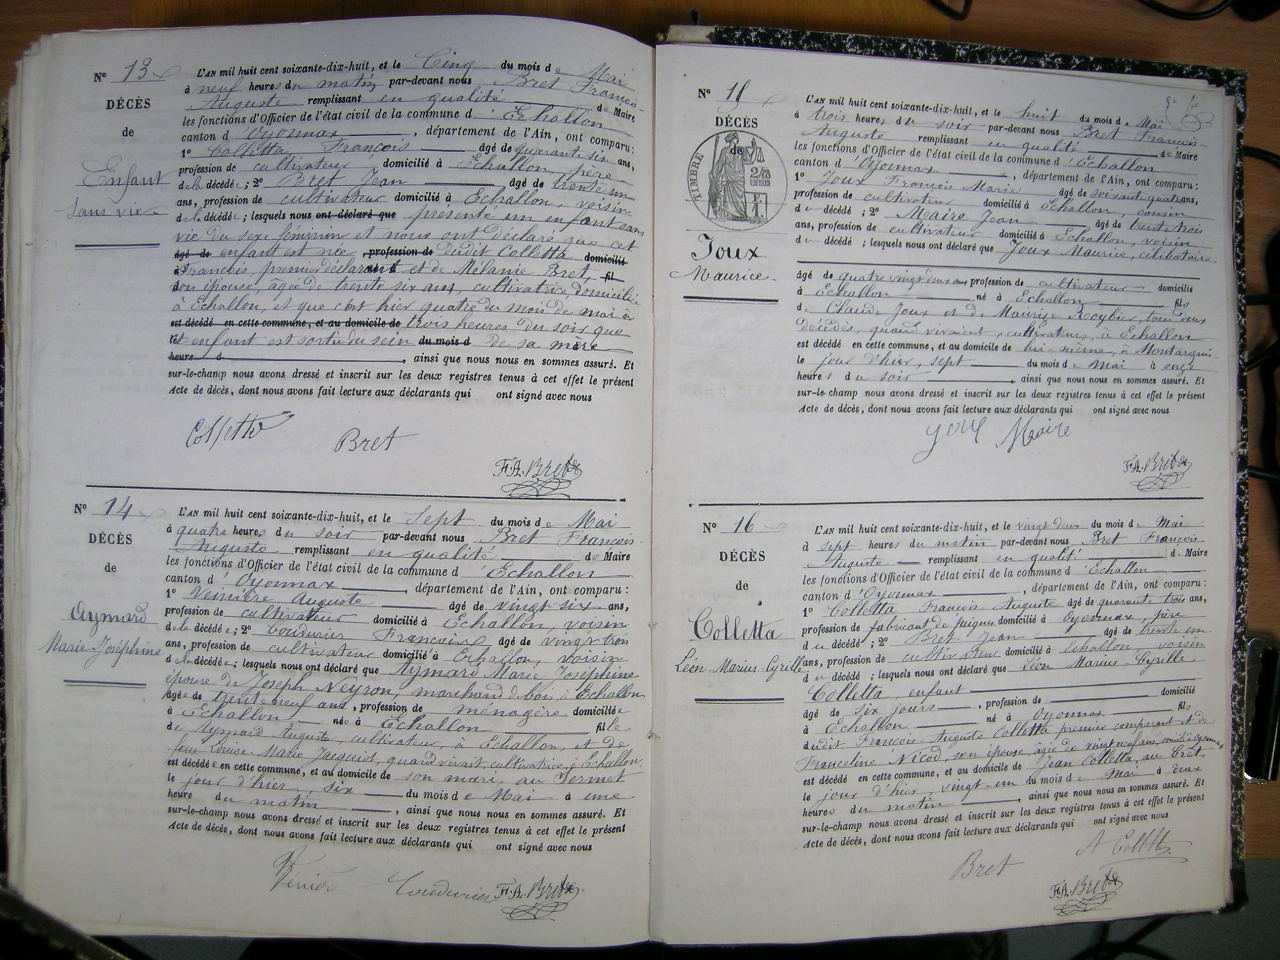 N° 13
DÉCÈS
de
Enfant
sans vie
L'AN mil huit cent soixante-dix-huit, et le Cinq du mois de Mai
à neuf heures du matin, par-devant nous Bret François-
Auguste remplissant en qualité de Maire
les fonctions d'Officier de l'état civil de la commune d'Echallon
canton d'Oyonnax, département de l'Ain, ont comparu:
1° Colletta François âgé de quarante six ans,
profession de cultivateur domicilié à Echallon, père
de la décédée; 2° Bret Jean âgé de trente un
ans, profession de cultivateur domicilié à Echallon, voisin
de la décédée; lesquels nous ont déclaré que présenté un enfant sans
vie du sexe féminin et nous ont déclaré que cet
âgé de enfant est née profession de dudit Colletta domicilié
à François, premier déclarant et de Mélanie Bret, fil
son épouse, âgée de trente six ans, cultivatrice, domiciliée
à Echallon, et que c'est hier quatre du mois de mai à
est décédé en cette commune, et au domicile de trois heures du soir que
cet enfant est sortie du sein du mois d de sa mère
heure d , ainsi que nous nous en sommes assuré. Et
sur-le-champ nous avons dressé et inscrit sur les deux registres tenus à cet effet le présent
Acte de décès, dont nous avons fait lecture aux déclarants qui ont signé avec nous
Colletta Bret
F.A. Bret
N° 14
DÉCÈS
de
Aymard
Marie-Joséphine
L'AN mil huit cent soixante-dix-huit, et le Sept du mois de Mai
à quatre heures du soir par-devant nous Bret François-
Auguste remplissant en qualité de Maire
les fonctions d'Officier de l'état civil de la commune d'Echallon
canton d'Oyonnax, département de l'Ain, ont comparu:
1° Auguste âgé de vingt six ans,
profession de cultivateur domicilié à Echallon, voisin
de la décédée; 2° François âgé de vingt trois
ans, profession de cultivateur domicilié à Echallon, voisin
de la décédée; lesquels nous ont déclaré que Aymard Marie Joséphine
épouse de Joseph Neyron, marchand de bois à Echallon
âgée de trente neuf ans, profession de ménagère domiciliée
à Echallon née à Echallon fille
de Aymard Auguste, cultivateur, à Echallon, et de
feue Louise Marie Jacquiod, quand vivait, cultivatrice, à Echallon,
est décédée en cette commune, et au domicile de son mari, au
le jour d'hier, six du mois de Mai à une
heure du matin , ainsi que nous nous en sommes assuré. Et
sur-le-champ nous avons dressé et inscrit sur les deux registres tenus à cet effet le présent
Acte de décès, dont nous avons fait lecture aux déclarants qui ont signé avec nous
F.A. Bret
N° 15
DÉCÈS
de
TIMBRE
Joux
Maurice
L'AN mil huit cent soixante-dix-huit, et le huit du mois de Mai
à trois heures du soir par-devant nous Bret François-
Auguste remplissant en qualité de Maire
les fonctions d'Officier de l'état civil de la commune d'Echallon
canton d'Oyonnax, département de l'Ain, ont comparu:
1° Joux François Marie âgé de soixante quatre ans,
profession de cultivateur domicilié à Echallon, cousin
du décédé; 2° Maire Jean âgé de trente trois
ans, profession de cultivateur domicilié à Echallon, voisin
du décédé; lesquels nous ont déclaré que Joux Maurice, célibataire
âgé de quatre vingt deux ans profession de cultivateur domicilié
à Echallon né à Echallon fils
de Claude Joux et de Maurise tous deux
décédés, quand vivaient, cultivateurs, à Echallon
est décédé en cette commune, et au domicile de lui-même, à
le jour d'hier, sept du mois de Mai à onze
heures du soir , ainsi que nous nous en sommes assuré. Et
sur-le-champ nous avons dressé et inscrit sur les deux registres tenus à cet effet le présent
Acte de décès, dont nous avons fait lecture aux déclarants qui ont signé avec nous
Joux Maire
F.A. Bret
N° 16
DÉCÈS
de
Colletta
Léon Marius Cyrille
L'AN mil huit cent soixante-dix-huit, et le vingt deux du mois de Mai
à sept heures du matin par-devant nous Bret François
Auguste remplissant en qualité de Maire
les fonctions d'Officier de l'état civil de la commune d'Echallon
canton d'Oyonnax, département de l'Ain, ont comparu:
1° Colletta François Auguste âgé de quarante trois ans,
profession de fabricant de peignes domicilié à Oyonnax, père
du décédé; 2° Bret Jean âgé de trente un
ans, profession de cultivateur domicilié à Echallon voisin
du décédé; lesquels nous ont déclaré que Léon Marius Cyrille
Colletta enfant
âgé de six jours, profession de domicilié
à Echallon né à Oyonnax
dudit François Auguste Colletta premier comparant et de
Franceline Nicod, son épouse âgée de vingt neuf ans,
est décédé en cette commune, et au domicile de Jean Colletta, au Crêt
le jour d'hier, vingt-un du mois de Mai à deux
heures du matin , ainsi que nous nous en sommes assuré. Et
sur-le-champ nous avons dressé et inscrit sur les deux registres tenus à cet effet le présent
Acte de décès, dont nous avons fait lecture aux déclarants qui ont signé avec nous
Bret A Colletta
F.A. Bret